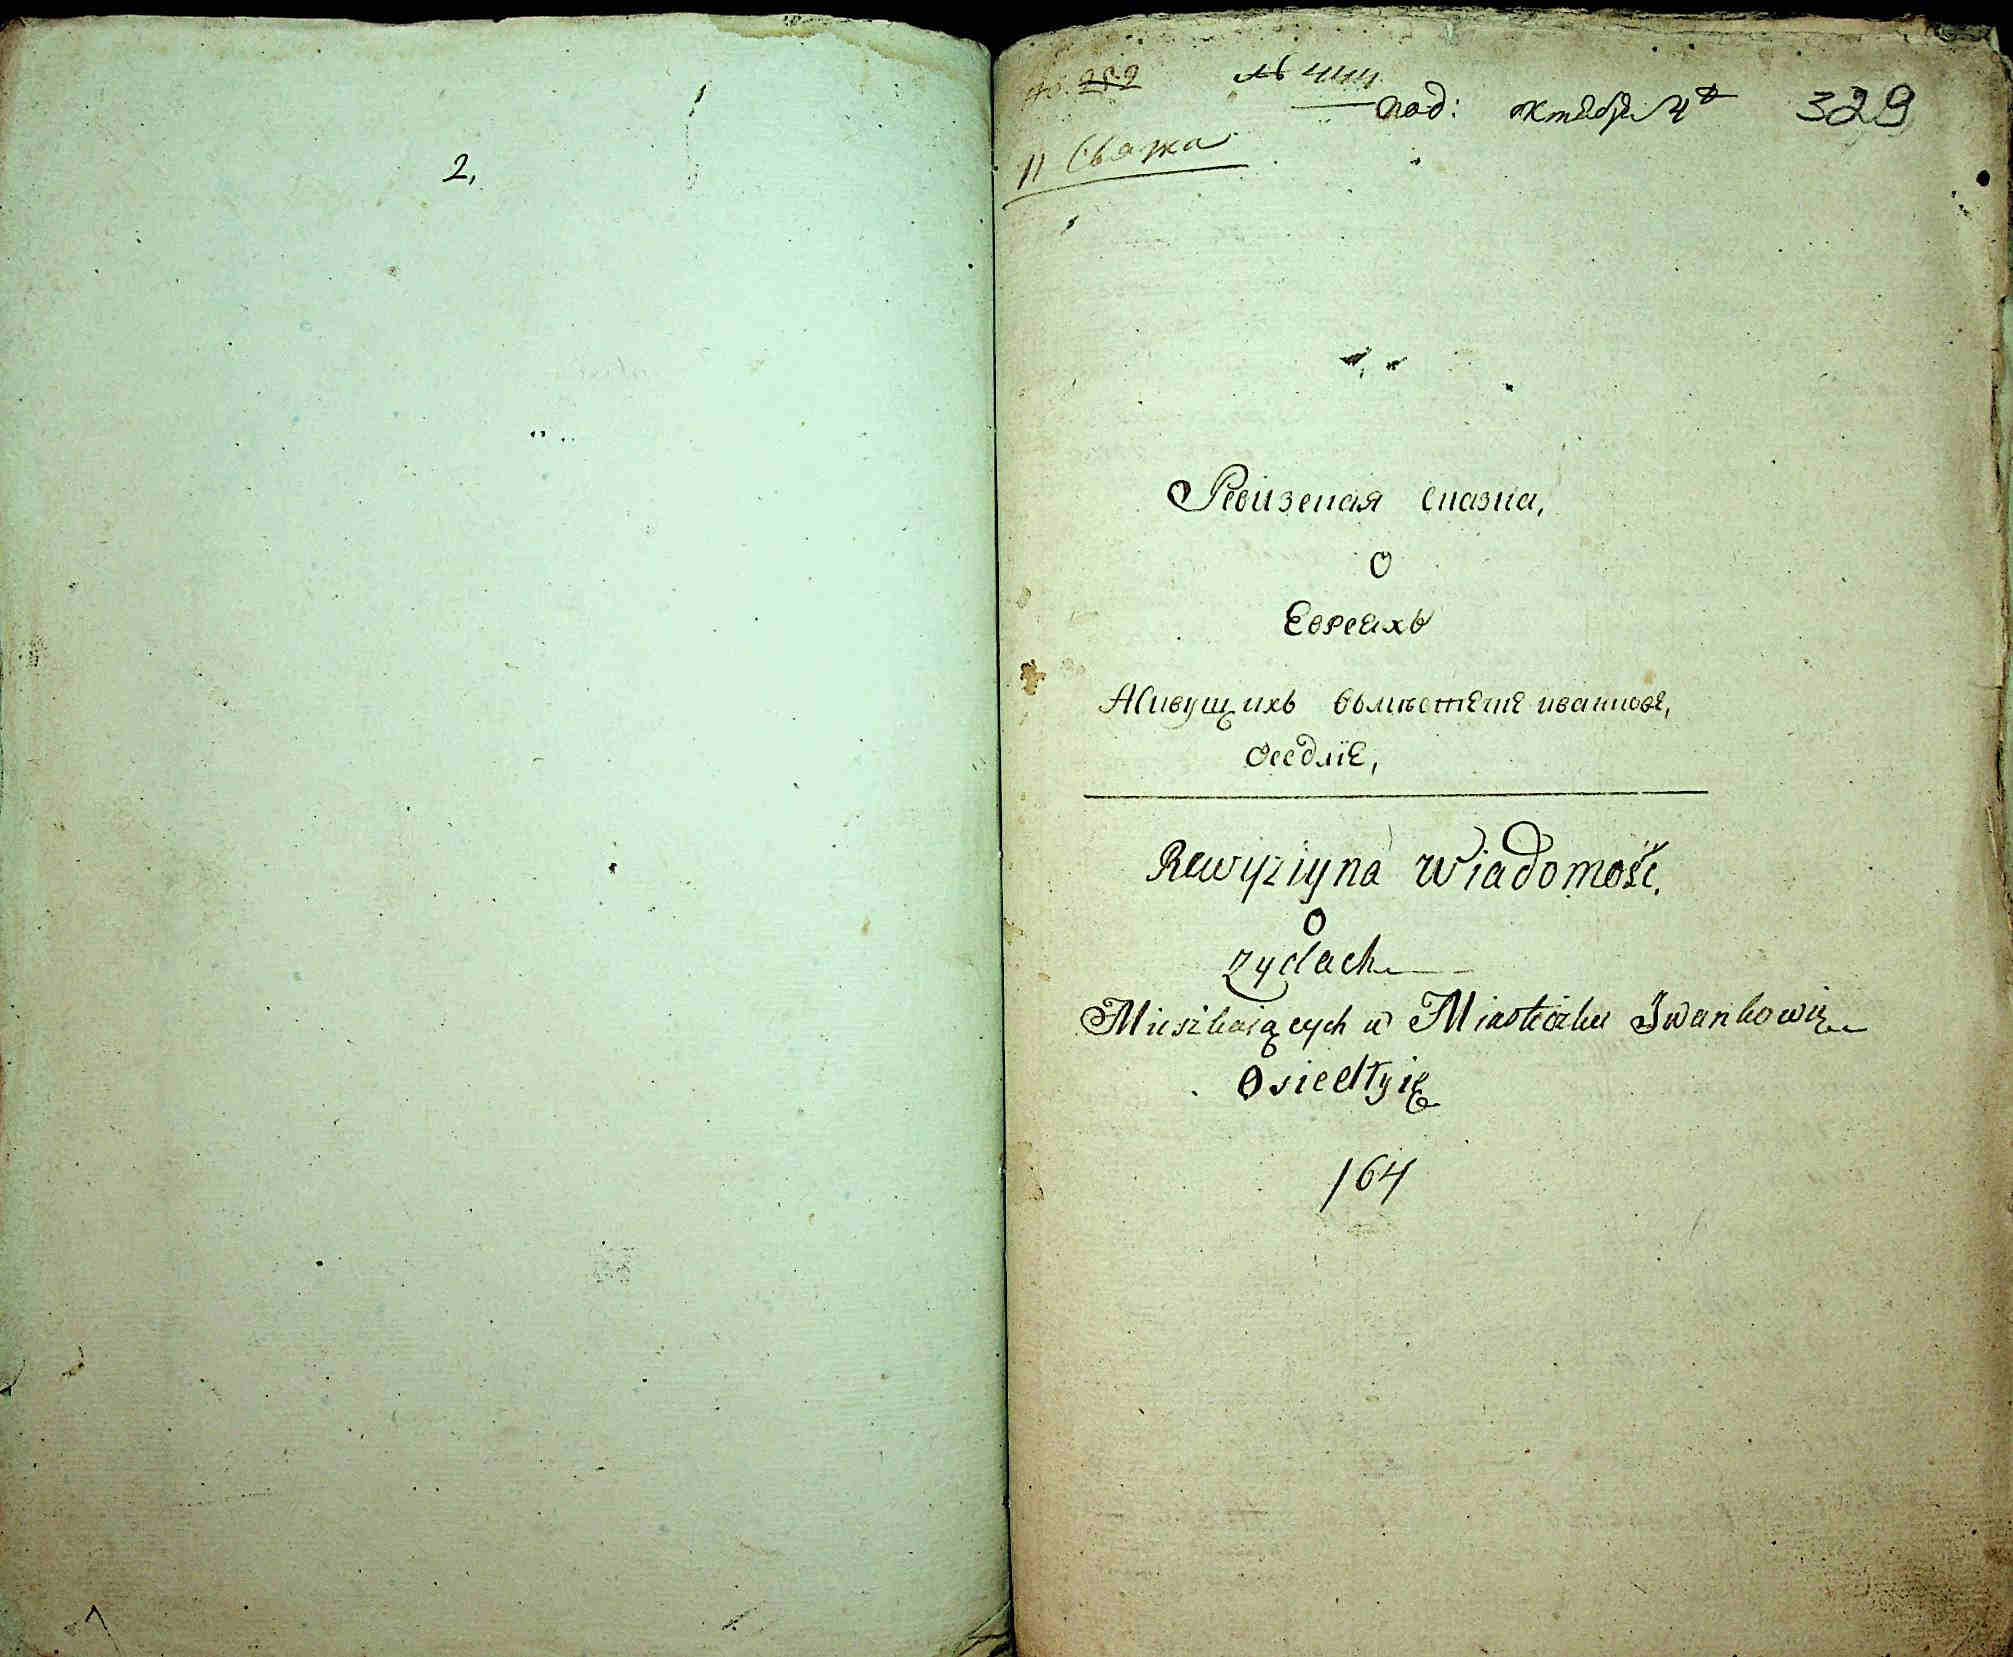 2,
№ 444
под: октября 4º 329
11 Связка
Ревизская сказка,
о
Евреяхъ
Живущихъ вьместечке иванкове,
оседлiе,
Rewyziyna Wiadomość.
O
zydach
Mieszkaiących w Miasteczku Jwankowie
Osiedłyie
164